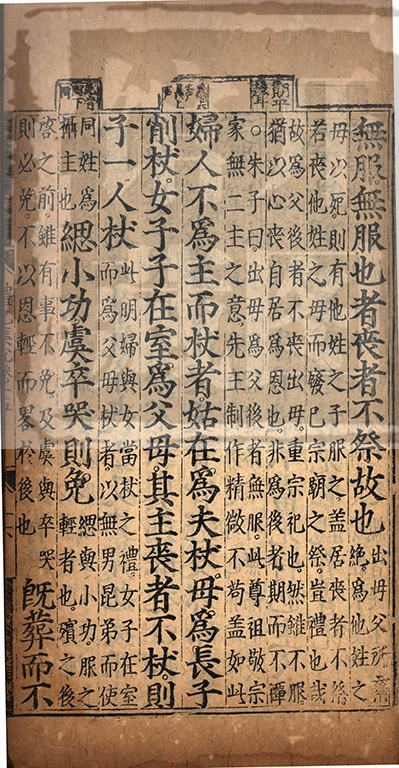 無服無服也者喪者不祭故也出母父所棄
絶爲他姓之
母以死則有他姓之子服之蓋居喪者不祭
若喪他姓之母而廢己宗朝之祭豈禮也哉
故爲父後者不喪出母重宗祀也然雖不服
猶以心喪自居爲恩也非爲後者期而不禫
。朱子曰出母爲父後者無服此尊祖敬宗
家無二主之意先王制作精微不苟蓋如此
婦人不爲主而杖者姑在爲夫杖母爲長子
削杖女子子在室爲父母其主喪者不杖則
子一人杖此明婦與女當杖之禮女子在室
而爲父母杖者以無男昆弟而使
同姓爲
攝主也
緦小功虞卒哭則免緦與小功服之
輕者也殯之後
啓之前雖有事不免及虞與卒哭
則必免不以恩輕而畧於後也
既葬而不